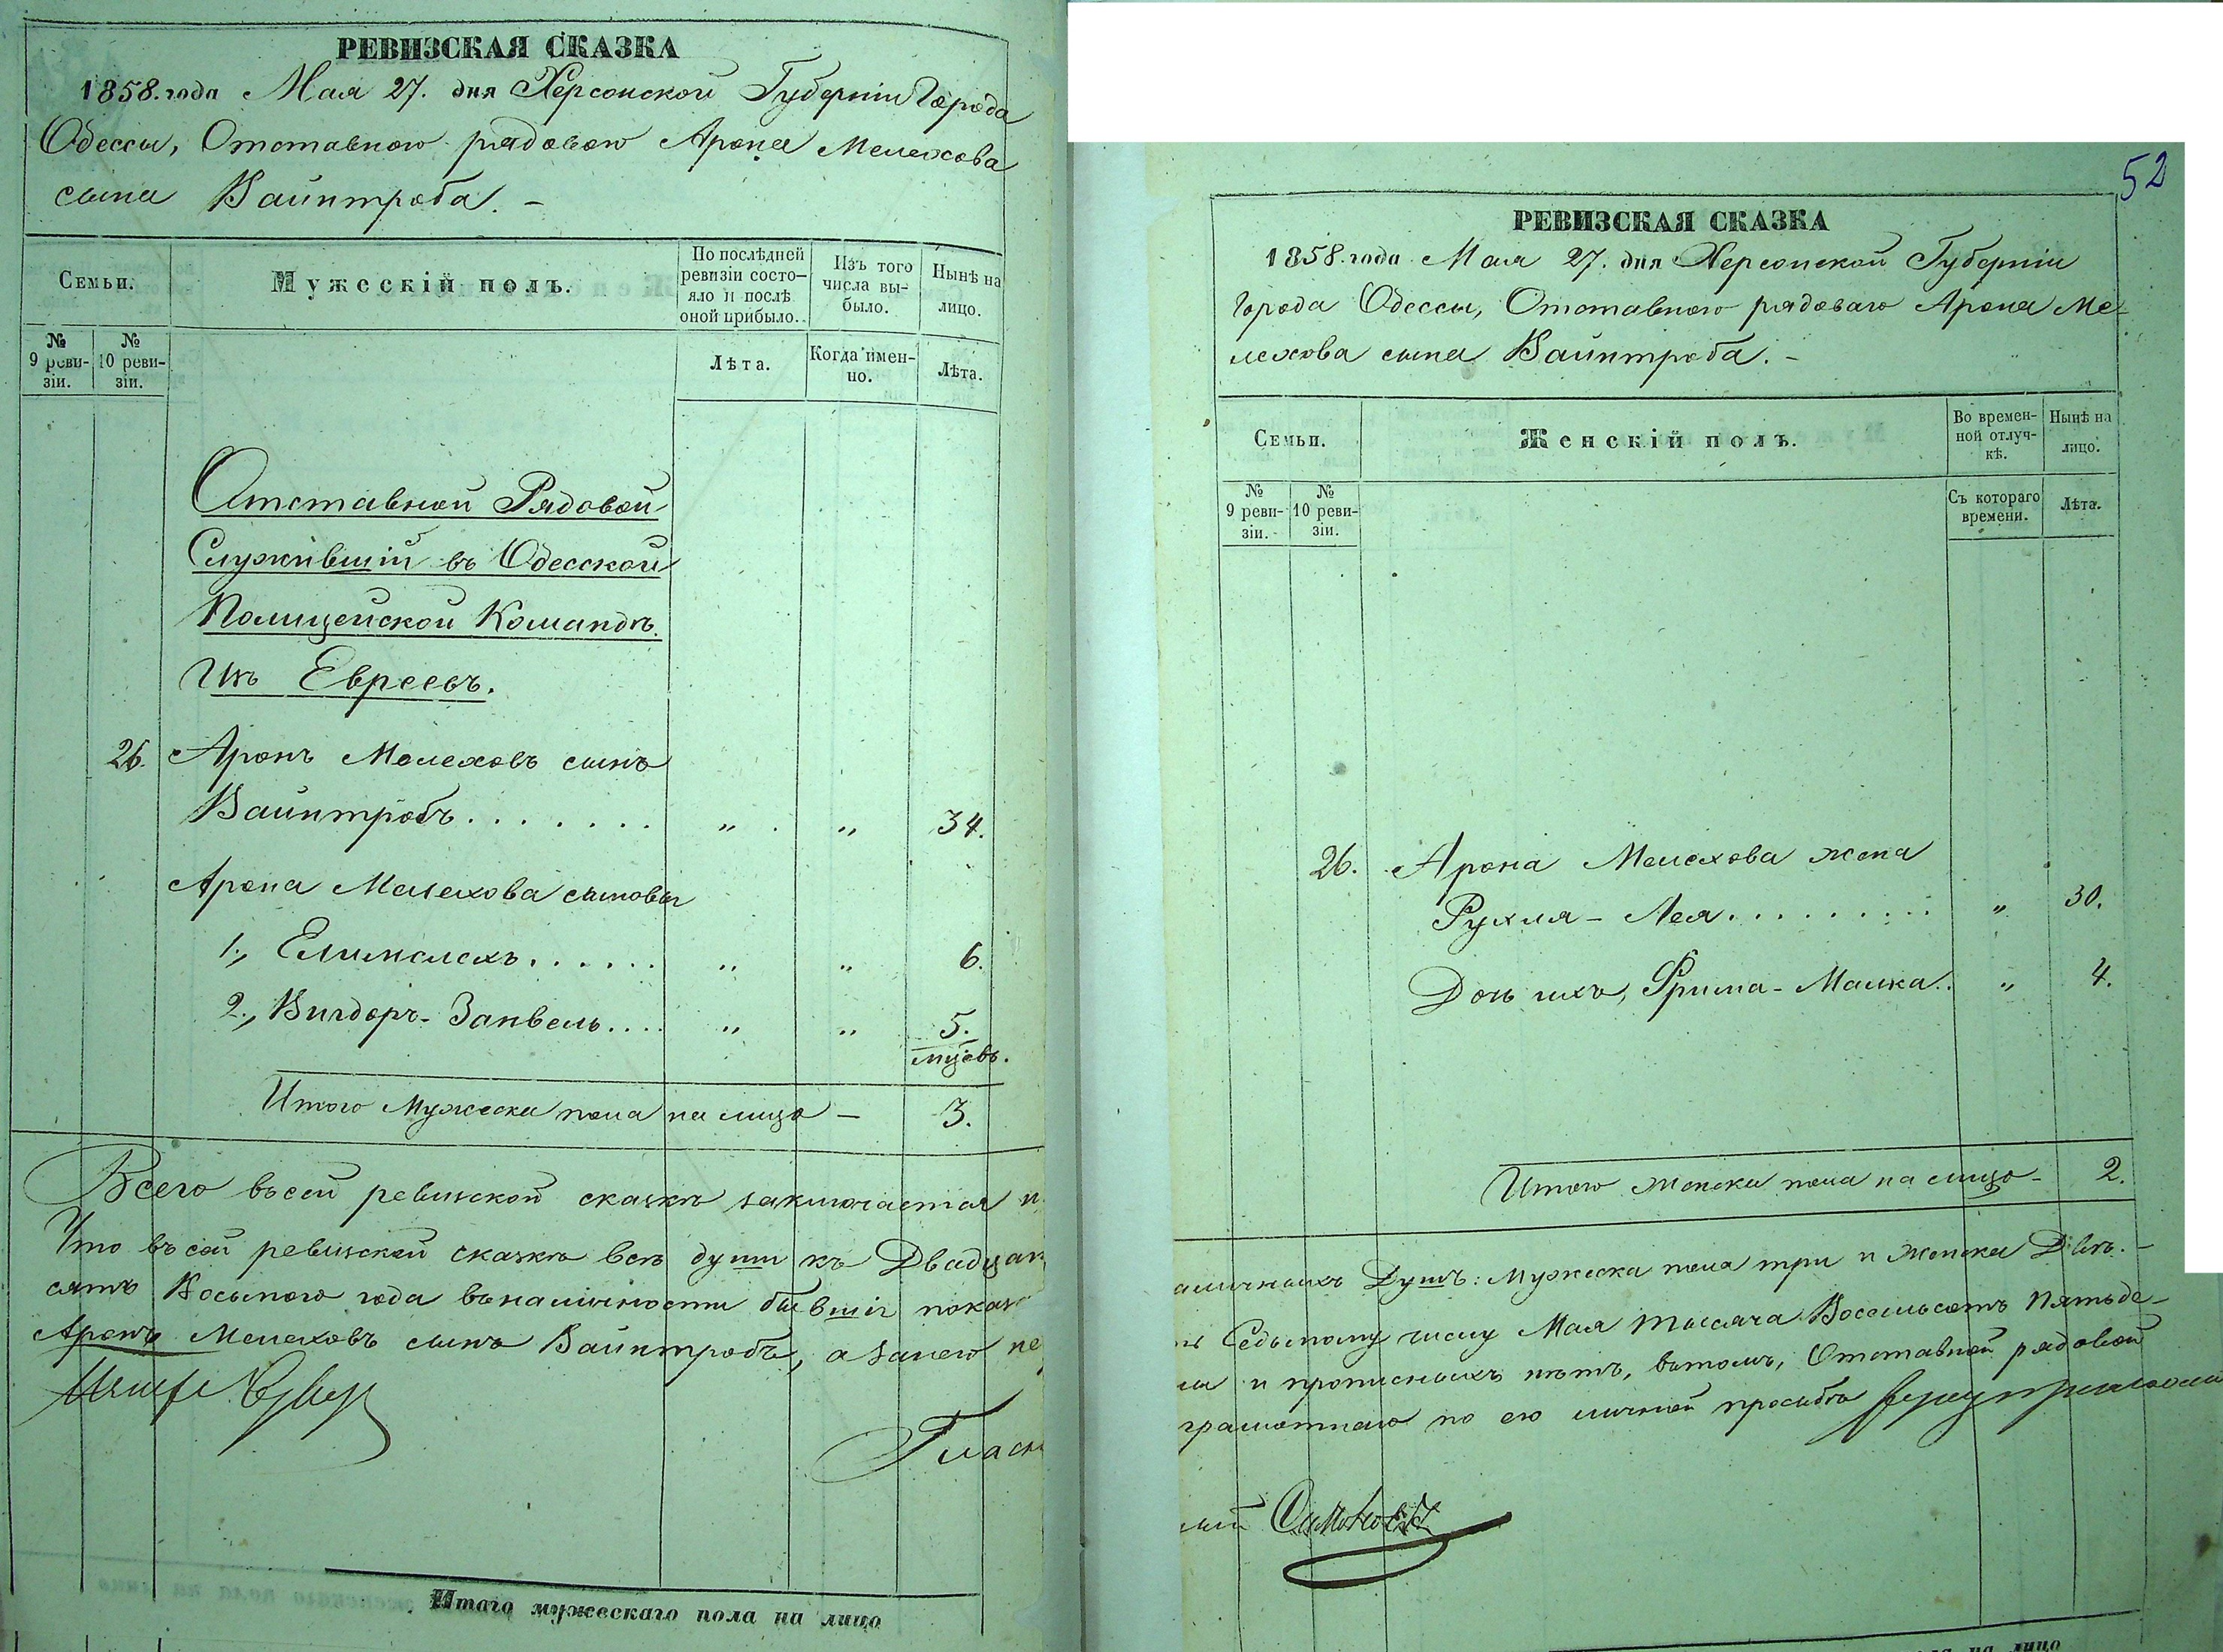 РЕВИЗСКАЯ СКАЗКА
1858. года Мая 27. дня Херсонской Губерніи Города
Одессы, Отставного рядового Арона Мелехова
сына Вайнтроба. –
Семьи.
Мужескій полъ.
По послѣдней
ревизіи состо-
яло и послѣ
оной прибыло.
Изъ того
числа вы-
было.
Нынѣ на
лицо.
№
9 реви-
зіи.
№
10 реви-
зіи.
Лѣта.
Когда имен-
но.
Лѣта.
Отставной Рядовой
Служившій въ Одесской
Полицейской Командѣ
Изъ Евреевъ.
26. Аронъ Мелеховъ сынъ
Вайнтробъ. . . . . . . „ „ 34.
Арона Мелехова сыновья
1., Елимелехъ. . . . . . „ „ 6.
2., Вигдоръ-Занвель. . . . „ „ 5.
мцевъ.
Итого Мужеска пола на лицо – 3.
Всего въ сей ревизской сказкѣ заключается н
Что въ сей ревизской сказкѣ всѣ души къ Двадцат
сятъ Восьмого года въ наличности бывшія показ
Аронъ Мелеховъ сынъ Вайнтробъ, а за него не
Гласн
Итого мужескаго пола на лицо
52
РЕВИЗСКАЯ СКАЗКА
1858. года Мая 27. дня Херсонской Губерніи
Города Одессы, Отставного рядоваго Арона Ме-
лехова сына Вайнтроба. –
Семьи.
Женскій полъ.
Во времен-
ной отлуч-
кѣ.
Нынѣ на
лицо.
№
9 реви-
зіи.
№
10 реви-
зіи.
Съ котораго
времени.
Лѣта.
26. Арона Мелехова жена
Рухля-Лея. . . . . . . . . „ 30.
Дочь ихъ, Фрима-Малка. . „ 4.
Итого Женска пола на лицо – 2.
аличныхъ Душъ: Мужеска пола три и Женска Двѣ. –
ь Седьмому числу Мая тысяча Восемьсотъ Пятьде-
ы и прописныхъ нѣтъ, въ томъ, Отставной рядовой
грамотнаго по его личной просьбѣ
ный Симонович
на лицо